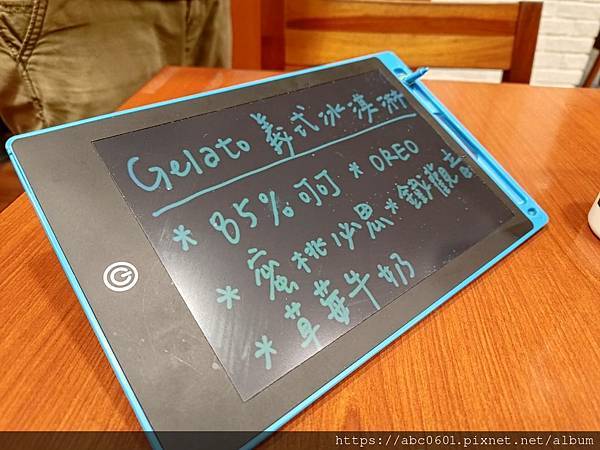 Gelato 義式冰淇淋
* 85%可可 * OREO
* 蜜桃沁思 * 鐵觀音
* 草莓牛奶
https://abc0601.pixnet.net/album